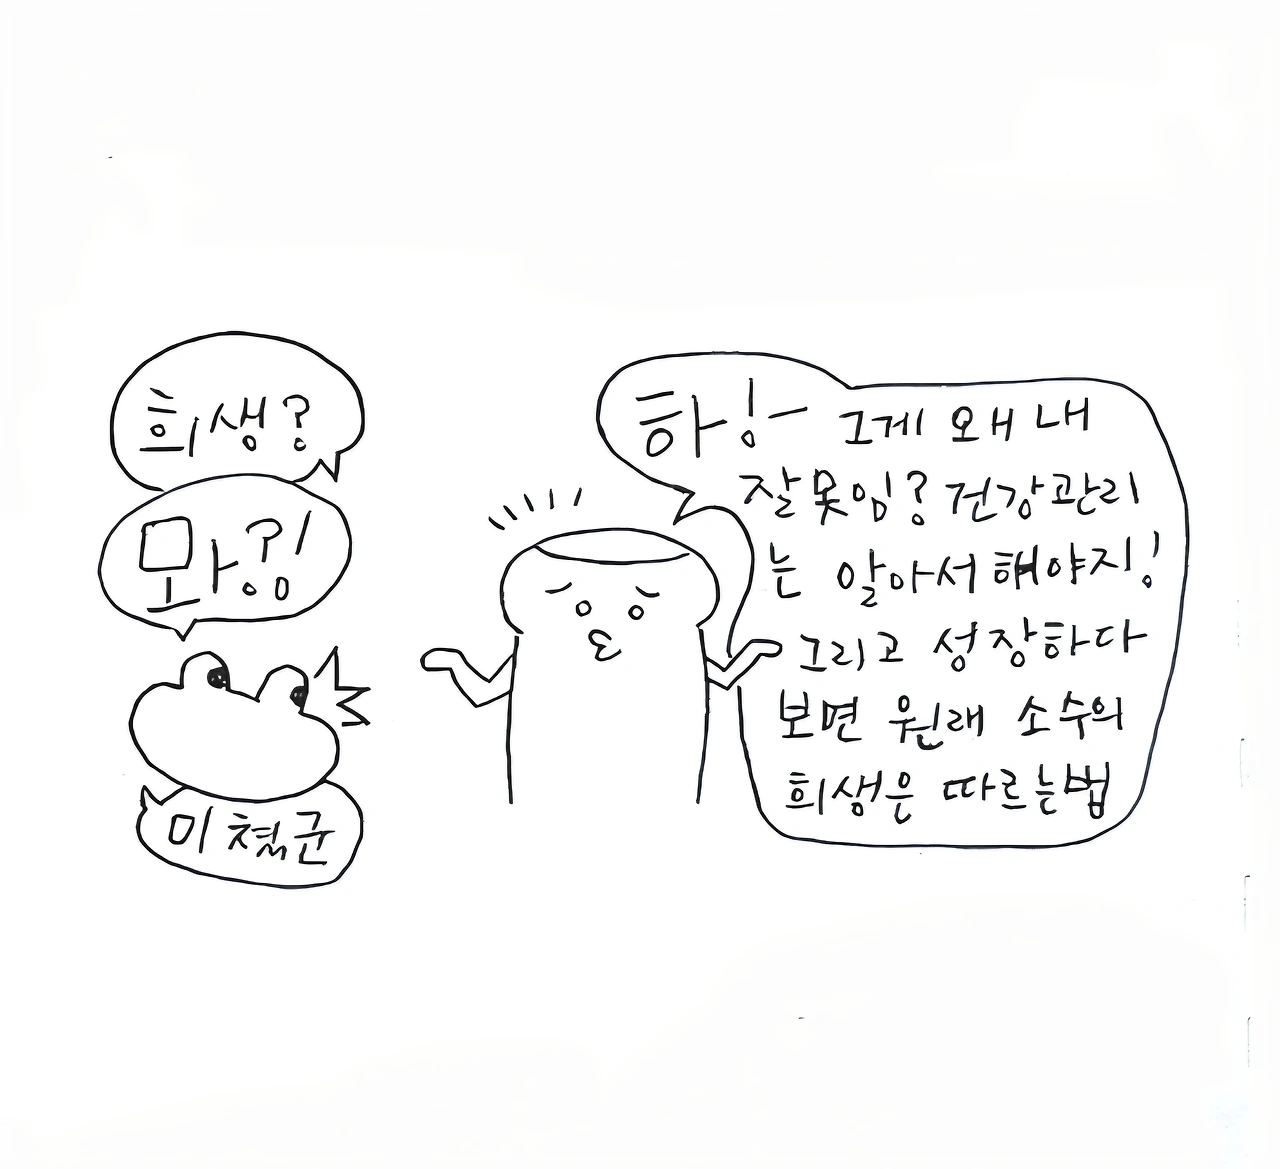 희생?
모앙?!
미쳤군
하!- 그게 왜 내
잘못임? 건강관리
는 알아서 해야지!
그리고 성장하다
보면 원래 소수의
희생은 따르는법